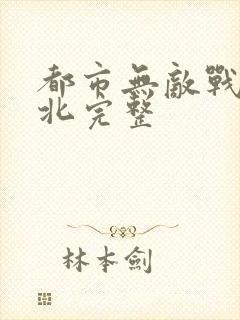 都市無敵戰
北完整
林本劍